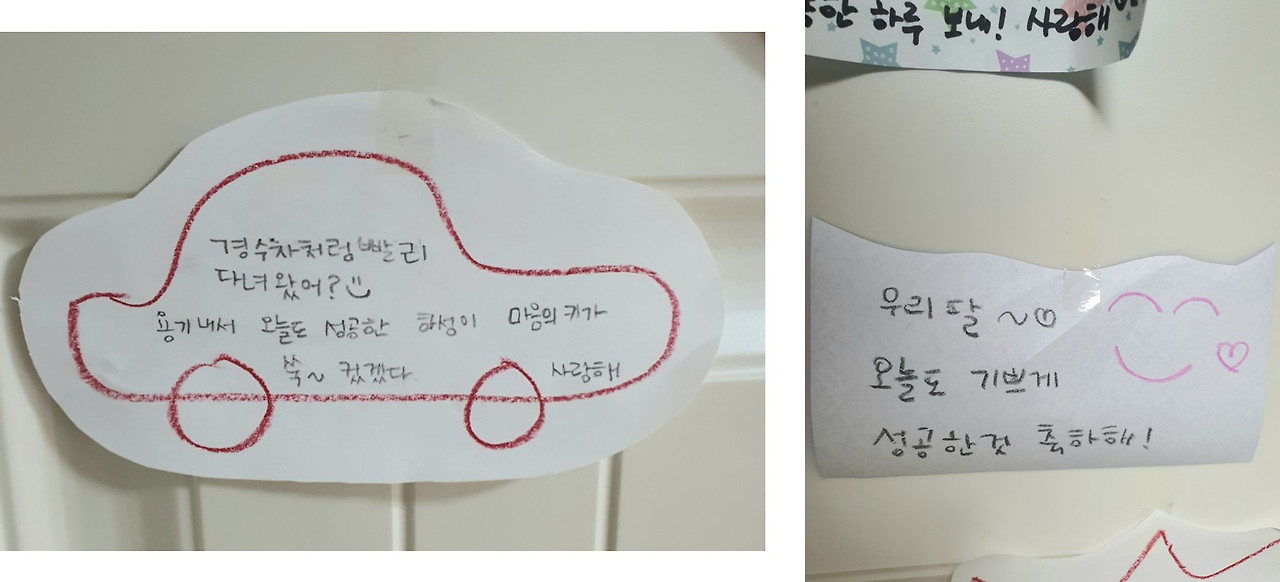 경수차처럼 빨리
다녀왔어?
용기내서 오늘도 성공한 하성이 마음의 키가
쑥~ 컸겠다. 사랑해
하루 보내! 사랑해
우리 달 ~♡
오늘도 기쁘게
성공한것 축하해!